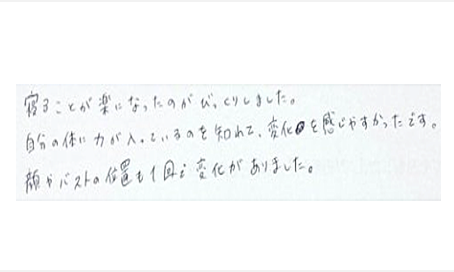 寝ることが楽になったのがびっくりしました。
自分の体に力が入っているのを知れて、変化を感じやすかったです。
顔やバストの位置も1回で変化がありました。